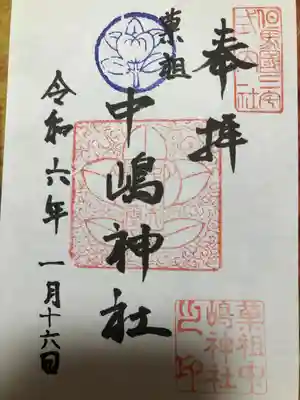 奉拝
但馬國二宮
式内社
菓祖
中嶋神社
菓祖中
嶋神社
之印
令和六年 一月十六日